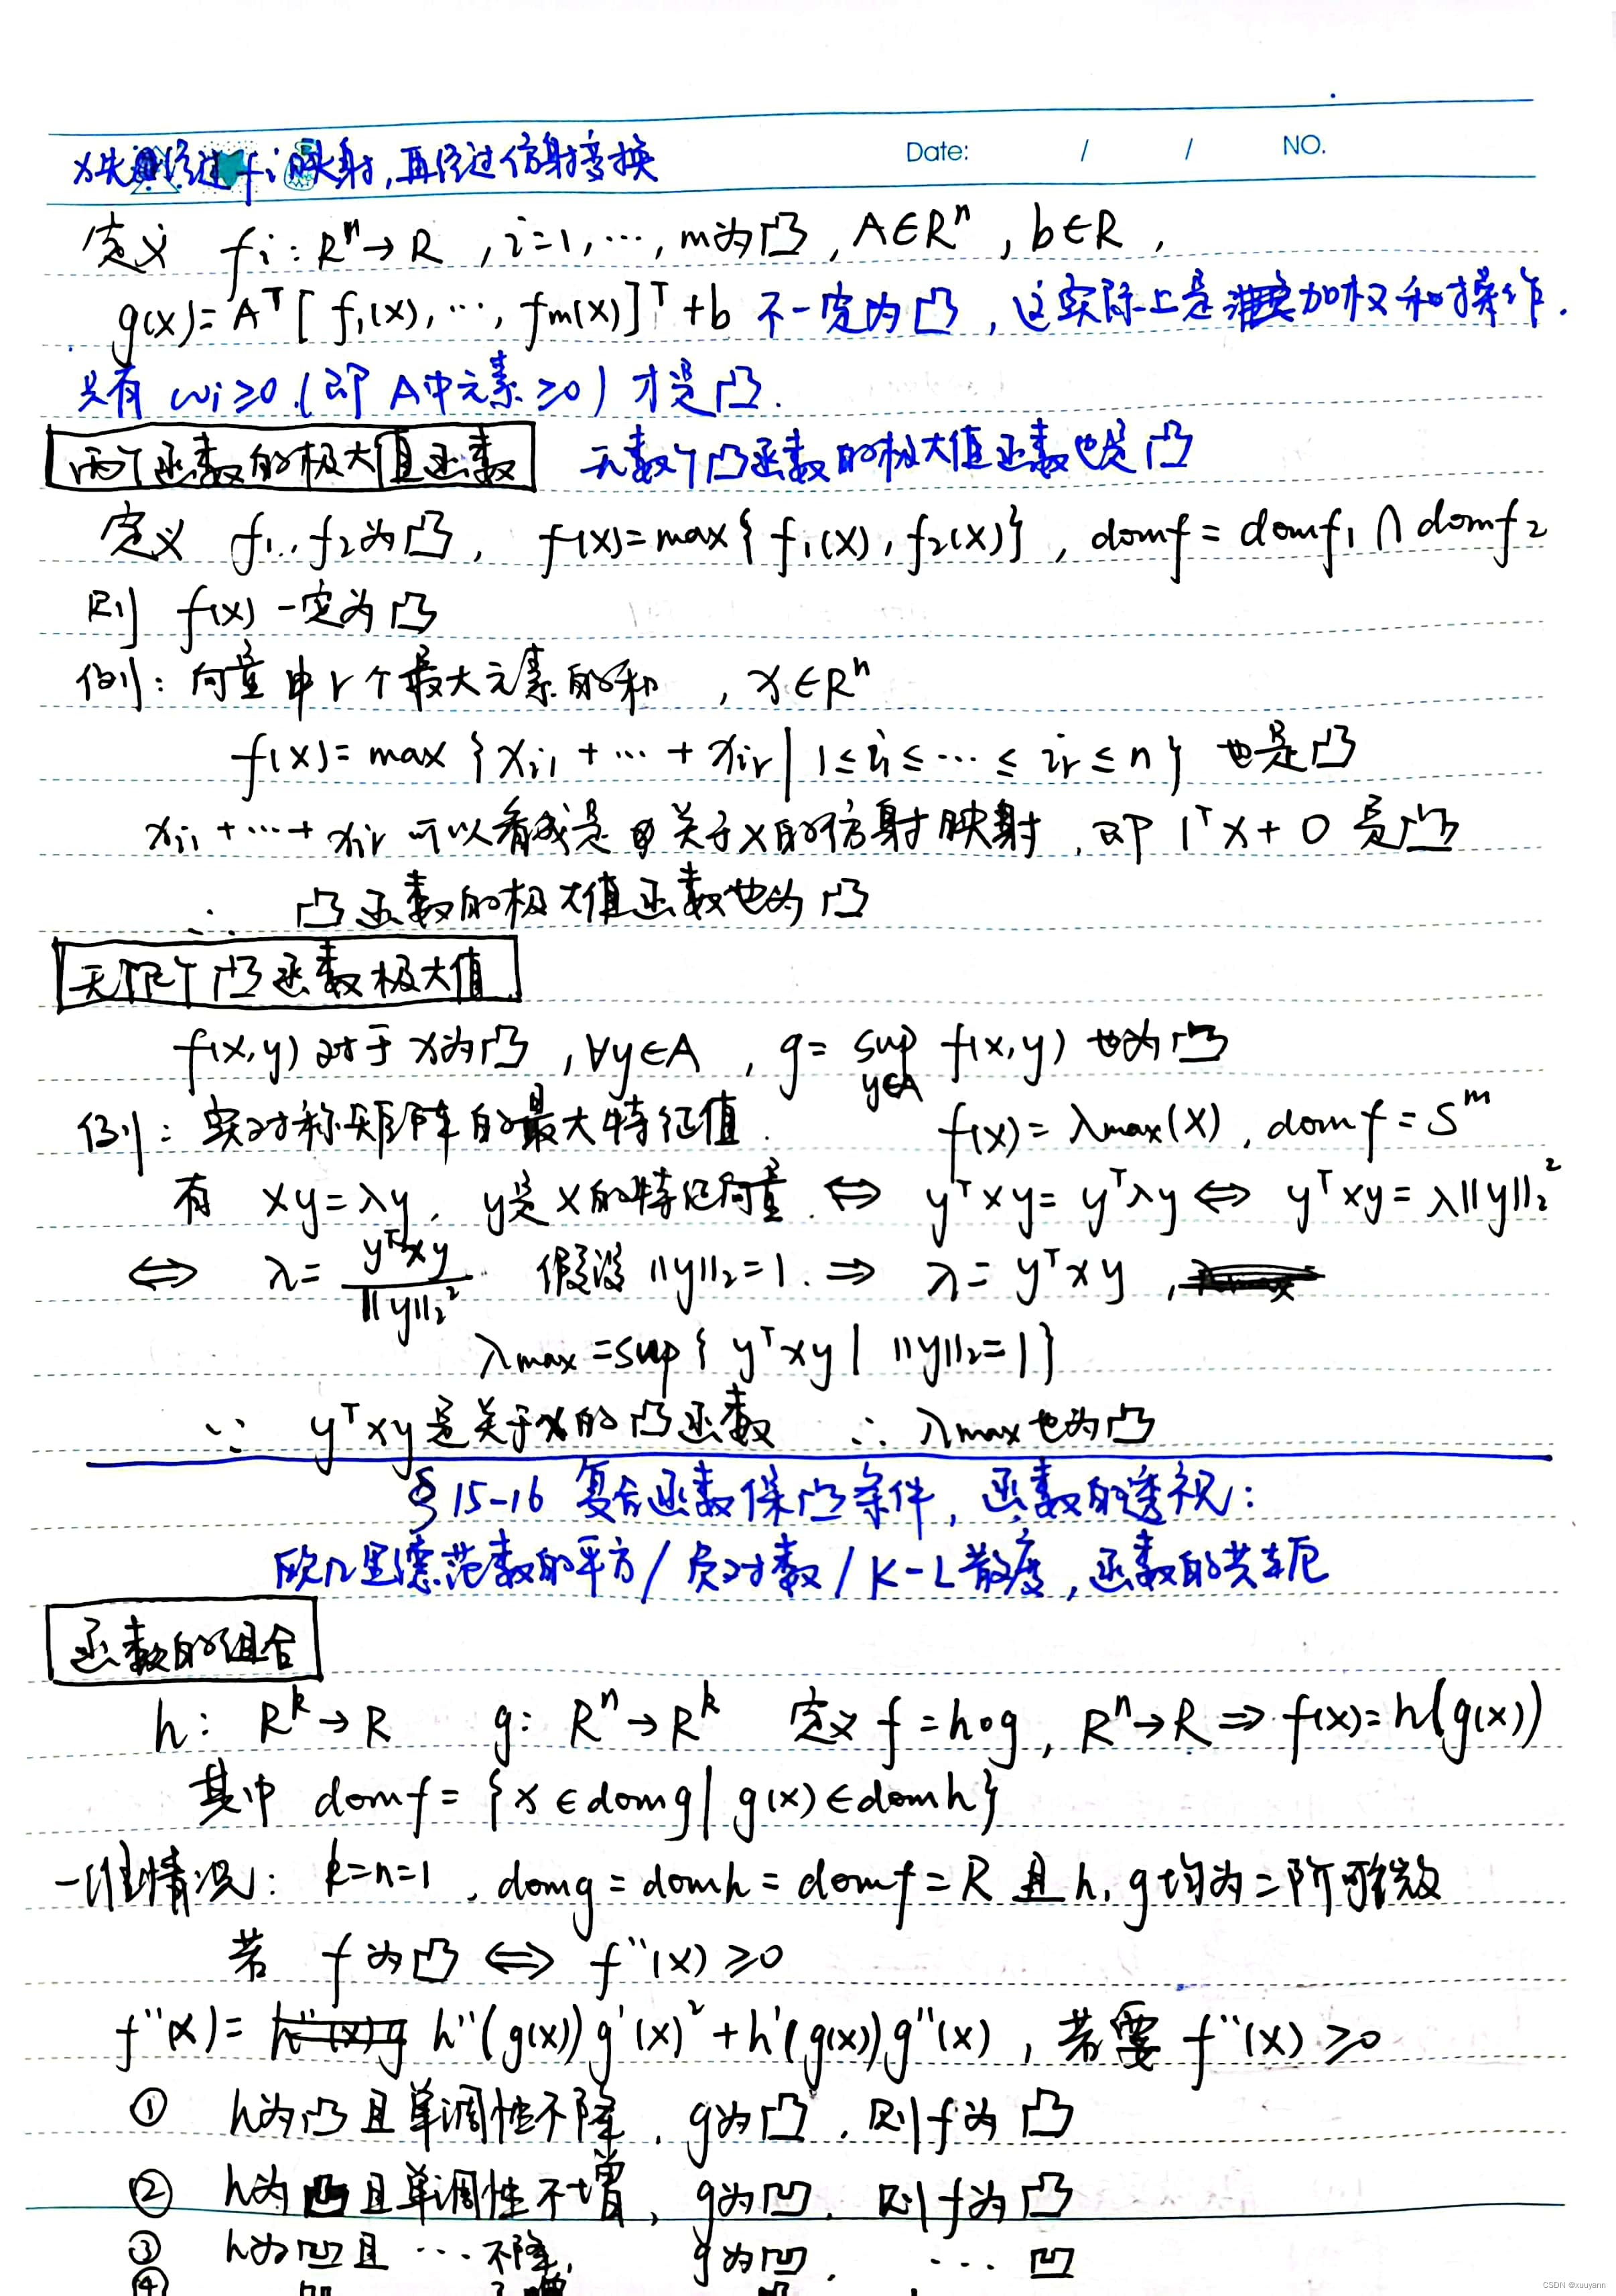 Date: / / NO.
x先经过fi映射,再经过仿射变换
定义 fi: Rⁿ→R , i=1, ⋯, m为凸, A∈Rⁿ, b∈R,
g(x)=Aᵀ[f₁(x), ⋯, fm(x)]ᵀ+b 不一定为凸, 这实际上是加权和操作.
只有 wi≥0 (即 A中元素≥0) 才是凸.
两个函数的极大值函数 无数个凸函数的极大值函数也是凸
定义 f₁, f₂为凸, f(x)=max{f₁(x), f₂(x)}, domf = domf₁ ∩ domf₂
则 f(x) 一定为凸
例: 向量中r个最大元素的和 , x∈Rⁿ
f(x)= max {xi1 + ⋯ + xir | 1≤i₁≤⋯≤ir≤n} 也是凸
xi1+⋯+xir 可以看成是关于x的仿射映射, 即 1ᵀx+0 是凸
∴ 凸函数的极大值函数也为凸
无限个凸函数极大值
f(x,y) 对于x为凸, ∀y∈A , g= sup f(x,y) 也为凸
y∈A
例: 实对称矩阵的最大特征值. f(x)=λmax(x), domf = Sᵐ
有 xy=λy, y是x的特征向量 ⇔ yᵀxy= yᵀλy ⇔ yᵀxy=λ||y||₂²
⇔ λ= yᵀxy / ||y||₂² 假设 ||y||₂=1. ⇒ λ= yᵀxy ,
λmax=sup{yᵀxy | ||y||₂=1}
∵ yᵀxy是关于x的凸函数 ∴ λmax也为凸
§15-16 复合函数保凸条件, 函数的透视:
欧几里德范数的平方/负对数/K-L散度, 函数的共轭
函数的组合
h: Rᵏ→R g: Rⁿ→Rᵏ 定义 f=h∘g, Rⁿ→R ⇒ f(x)=h(g(x))
其中 domf = {x∈domg| g(x)∈domh}
一维情况: k=n=1 , domg = domh = domf = R 且 h, g 均为二阶可微
若 f为凸 ⇔ f''(x)≥0
f''(x)= h''(g(x))g'(x)²+h'(g(x))g''(x) , 若要 f''(x)≥0
① h为凸且单调性不降, g为凸, 则f为凸
② h为凸且单调性不增, g为凹, 则f为凸
③ h为凹且 ⋯ 不降, g为凹, ⋯ 凹
④
CSDN @xuuyann